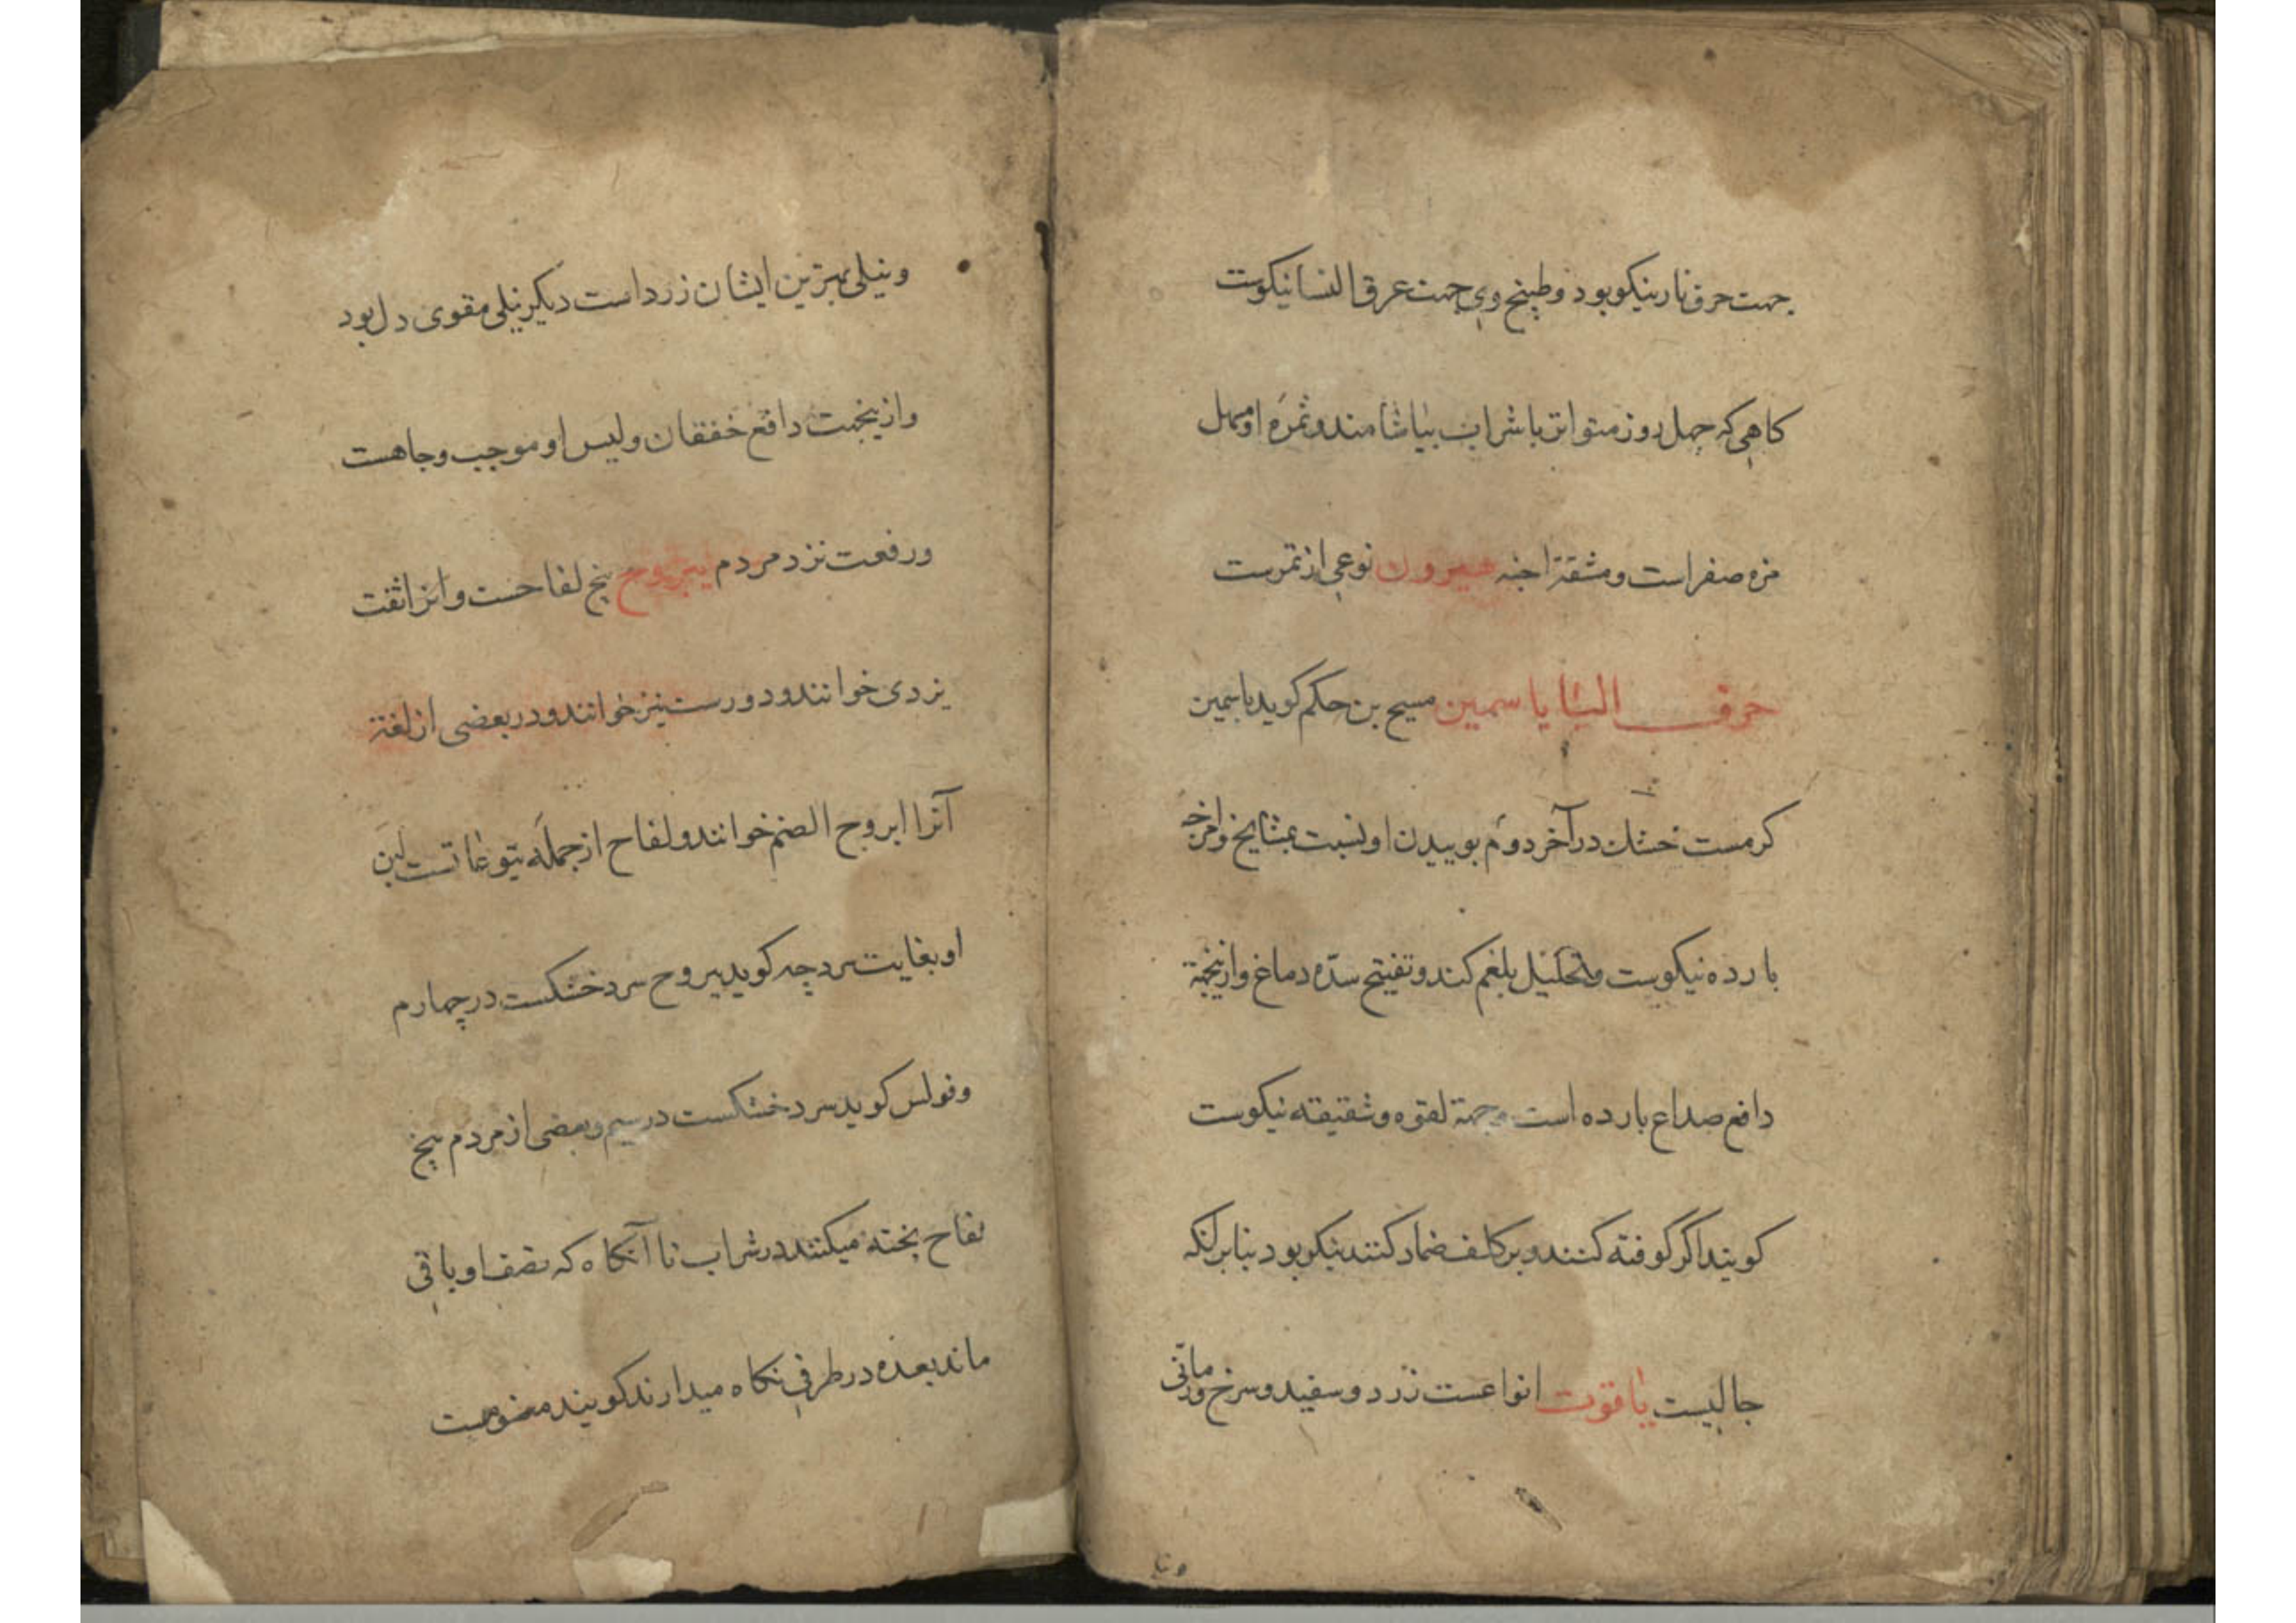 جهت حرق نار نیکو بود و طبیخ وی جهت عرق النسا نیکوست
کاهی که چهل روز متواتر با شراب بیاشامند و ثمرهٔ او مسهل
مره صفراست و مشقة اجنه هیرون نوعی از تمرست
حرف الیا یاسمین مسیح بن حکم کوید یاسمین
کرمست خشک در آخر دوم بوییدن او نسبت بمشایخ و امزجهٔ
بارده نیکوست و تحلیل بلغم کند و تفتیح سدّه دماغ و ازینجهة
دافع صداع بارده است و جهة لقوه و شقیقه نیکوست
کویند اکر کوفته کنند و بر کلف ضماد کنند نیکو بود بنابر آنکه
جالیست یاقوت انواعست زرد و سفید و سرخ و رمانی
و نیلی
و نیلی بهترین ایشان زرد است دیکر نیلی مقوی دل بود
و ازینجهت دافع خفقان و لبس او موجب وجاهست
و رفعت نزد مردم یبروح بیخ لفاحست و انرا تفت
یزدی خوانند و دورست نیز خوانند و در بعضی از لغة
آنرا ابروح الصنم خوانند و لفاح از جملهٔ یتوعاتست لبن
او بغایت سرد چه کوید یبروح سرد خشکست در چهارم
و فولس کوید سرد خشکست در سیم و بعضی از مردم بیخ
لفاح پخته میکنند در شراب تا آنکاه که نصف او باقی
ماند بعده در ظرفی نکاه میدارند کویند منومست